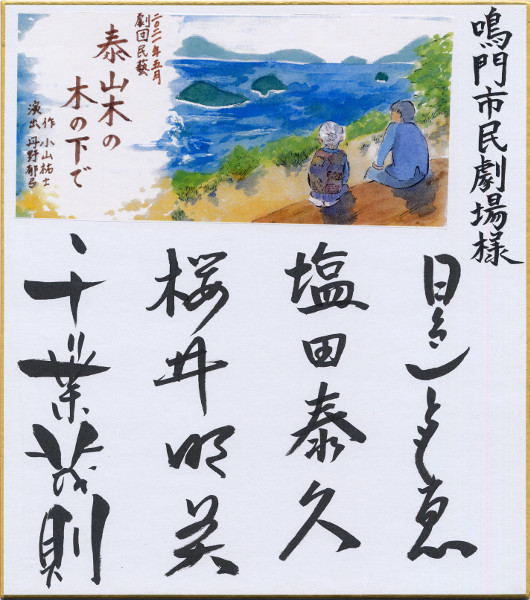 鳴門市民劇場様
二〇二一年五月
劇団民藝
泰山木の
木の下で
作 小山祐士
演出 丹野郁弓
日色ともゑ
塩田泰久
桜井明美
千葉茂則